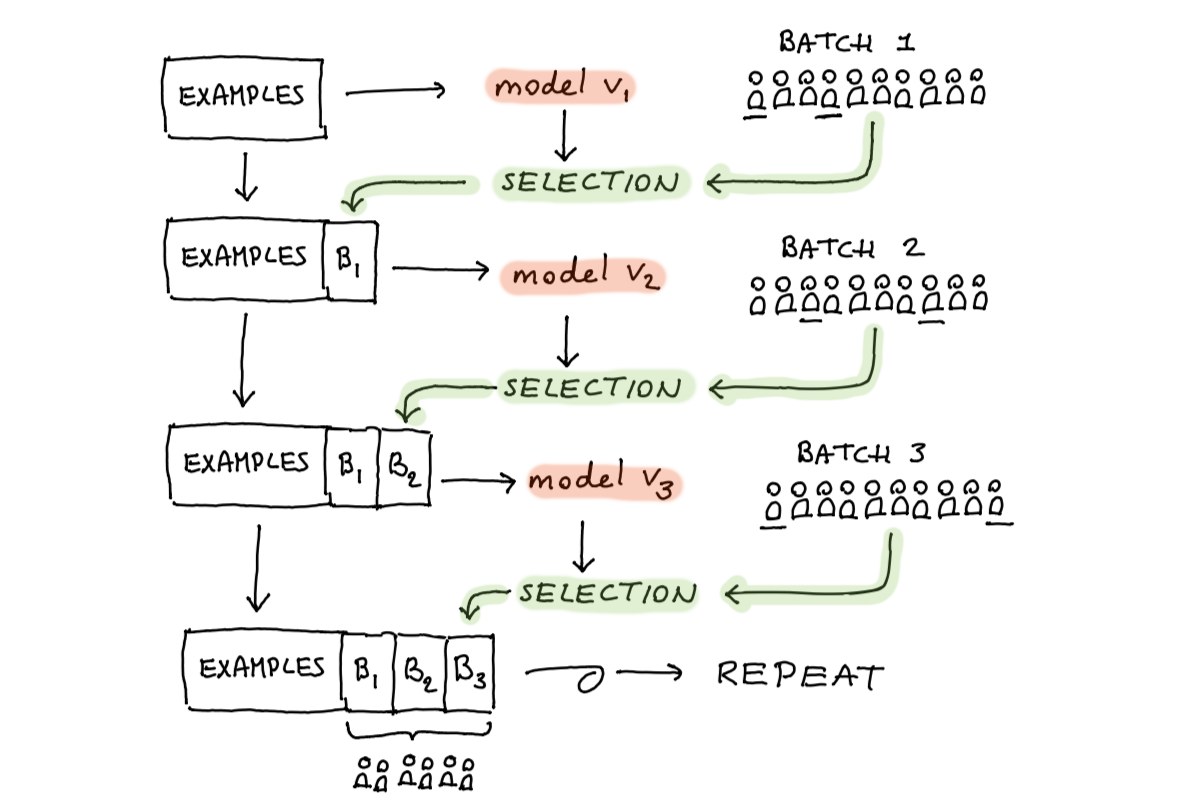 BATCH 1
EXAMPLES
model v₁
SELECTION
EXAMPLES B₁
model v₂
BATCH 2
SELECTION
EXAMPLES B₁ B₂
model v₃
BATCH 3
SELECTION
EXAMPLES B₁ B₂ B₃
REPEAT